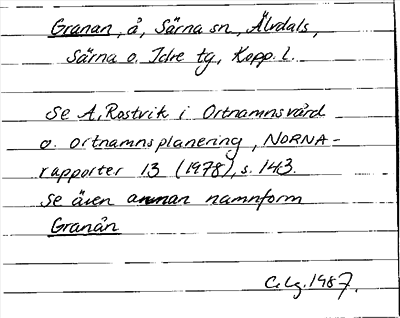 Granan, å, Särna sn, Älvdals,
Särna o. Idre tg, Kopp. l.
Se A. Rostvik i Ortnamnsvård
o. ortnamnsplanering, NORNA-
rapporter 13 (1978), s. 143.
Se även annan namnform
Granån
C. Lg. 1987.